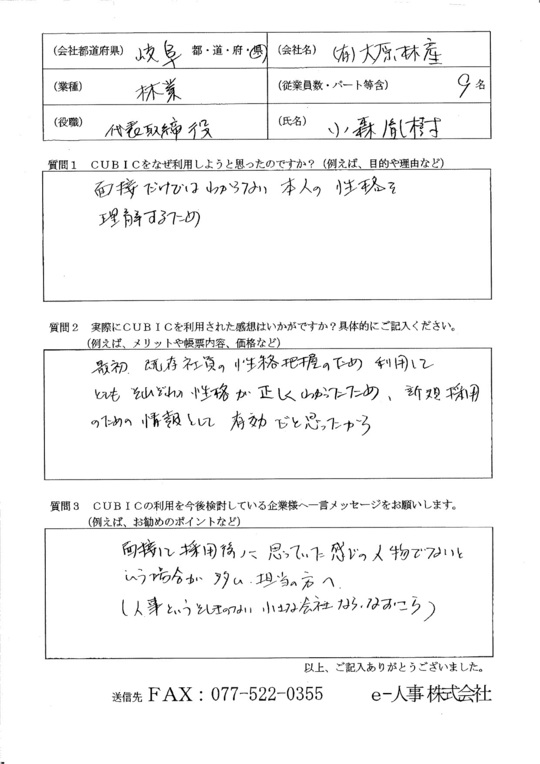 (会社都道府県) 岐阜 都・道・府・県 (会社名) (有)大原林産
(業種) 林業 (従業員数・パート等含) 9名
(役職) 代表取締役 (氏名) 小森胤樹
質問1 CUBICをなぜ利用しようと思ったのですか?(例えば、目的や理由など)
面接だけではわからない 本人の 性格を
理解するため
質問2 実際にCUBICを利用された感想はいかがですか?具体的にご記入ください。
(例えば、メリットや帳票内容、価格など)
最初、既存社員の性格把握のため 利用して
とても それぞれの 性格が 正しくわかったため、新規採用
のための 情報として 有効だと思ったから
質問3 CUBICの利用を今後検討している企業様へ一言メッセージをお願いします。
(例えば、お勧めのポイントなど)
面接にて採用後に 思っていた感じの人物でないと
いう場合が 多い、担当の方へ、
(人事というとしきのない 小さな会社なら、なおさら)
以上、ご記入ありがとうございました。
送信先 FAX:077-522-0355 e-人事株式会社